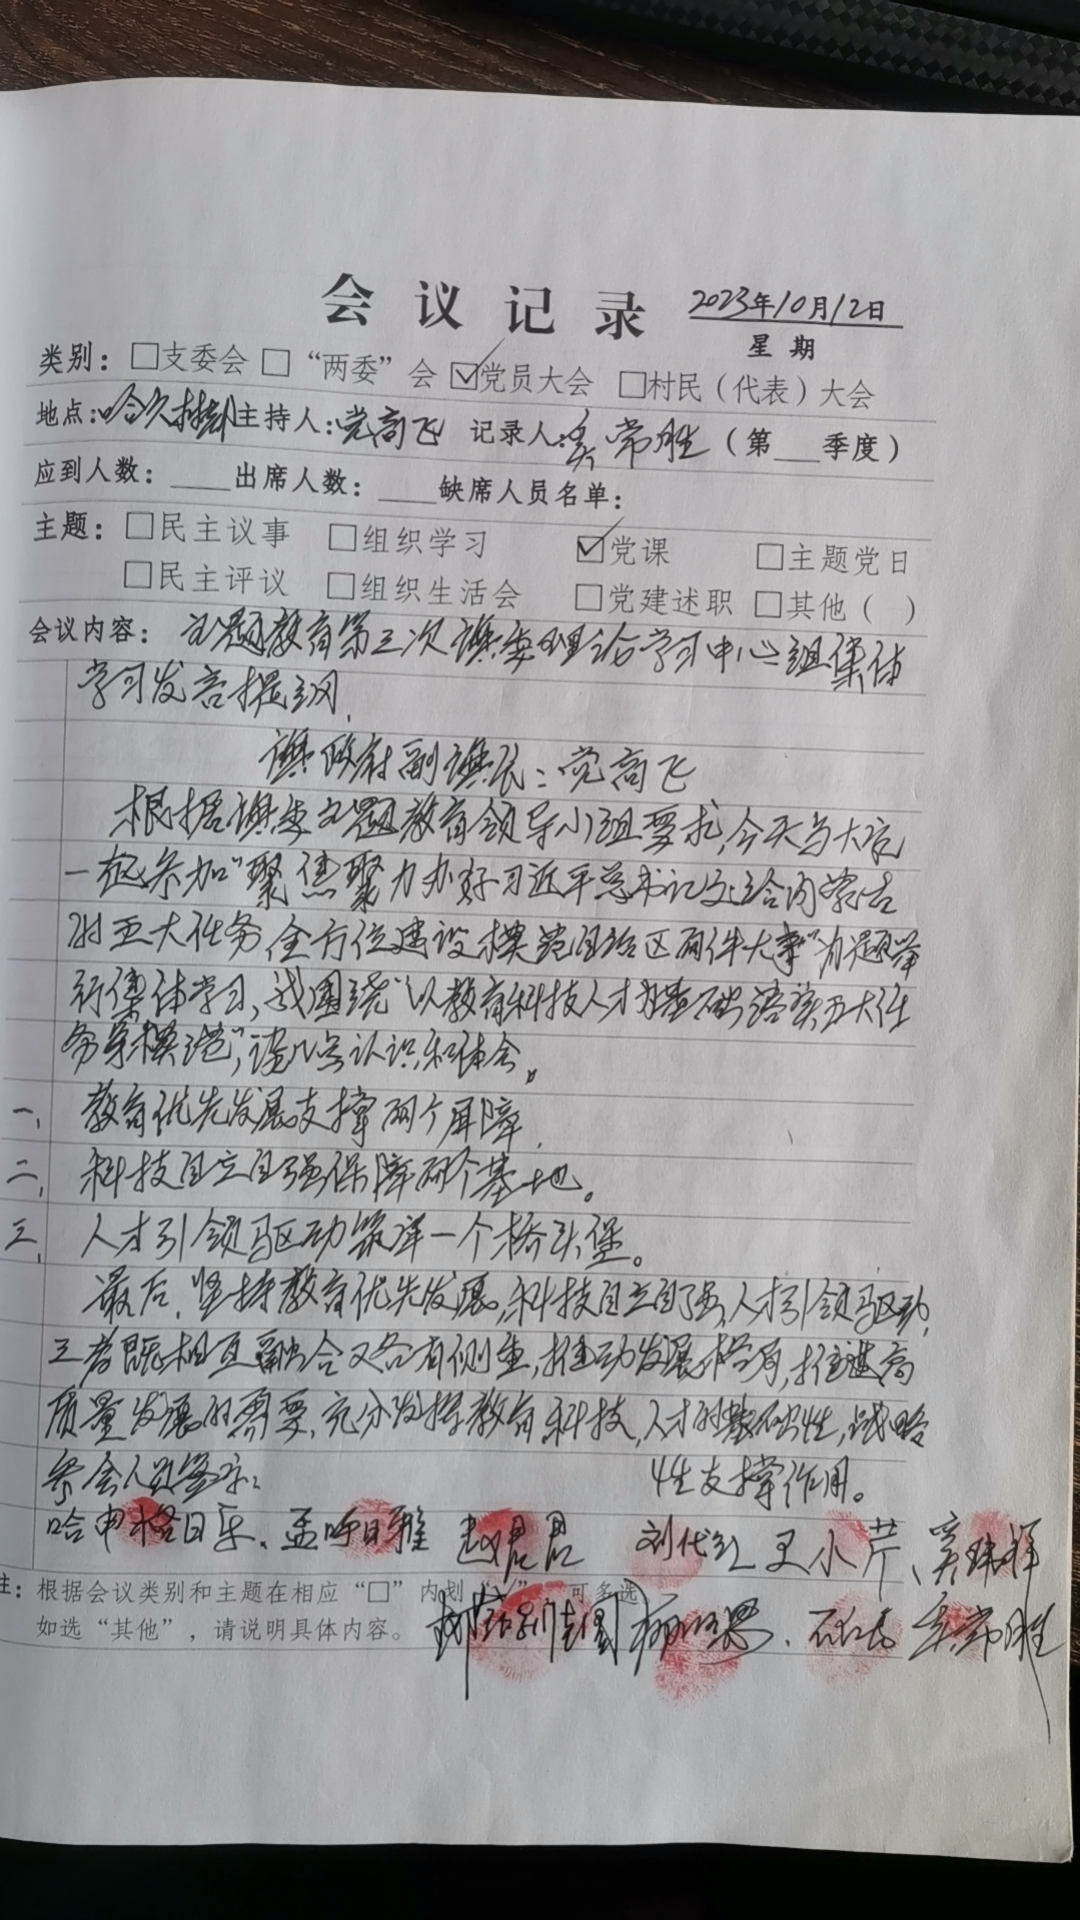 会议记录 2023年10月12日
星期
类别：□支委会 □“两委”会 ☑党员大会 □村民（代表）大会
地点：哈久村部 主持人：党高飞 记录人：吴常胜（第___季度）
应到人数：____出席人数：____缺席人员名单：
主题：□民主议事 □组织学习 ☑党课 □主题党日
□民主评议 □组织生活会 □党建述职 □其他（ ）
会议内容：主题教育第三次旗委理论学习中心组集体
学习发言提纲
旗政府副旗长：党高飞
根据旗委主题教育领导小组要求，今天与大家
一起参加“聚焦聚力办好习近平总书记交给内蒙古
的五大任务全方位建设模范自治区两件大事”为题举
行集体学习，我围绕“以教育科技人才为基础落实五大任
务争模范”，谈几点认识和体会。
一、教育优先发展支撑两个屏障，
二、科技自立自强保障两个基地。
三、人才引领驱动筑牢一个桥头堡。
最后，坚持教育优先发展，科技自立自强，人才引领驱动，
三者既相互融合又各有侧重，推动发展格局，推进高
质量发展的需要，充分发挥教育、科技、人才的基础性，战略
性支撑作用。
参会人员签字：
哈申格日乐、孟 赵君君 刘代红 王小芹、
石 吴常胜
注：根据会议类别和主题在相应“□”内划“√”，可多选
如选“其他”，请说明具体内容。